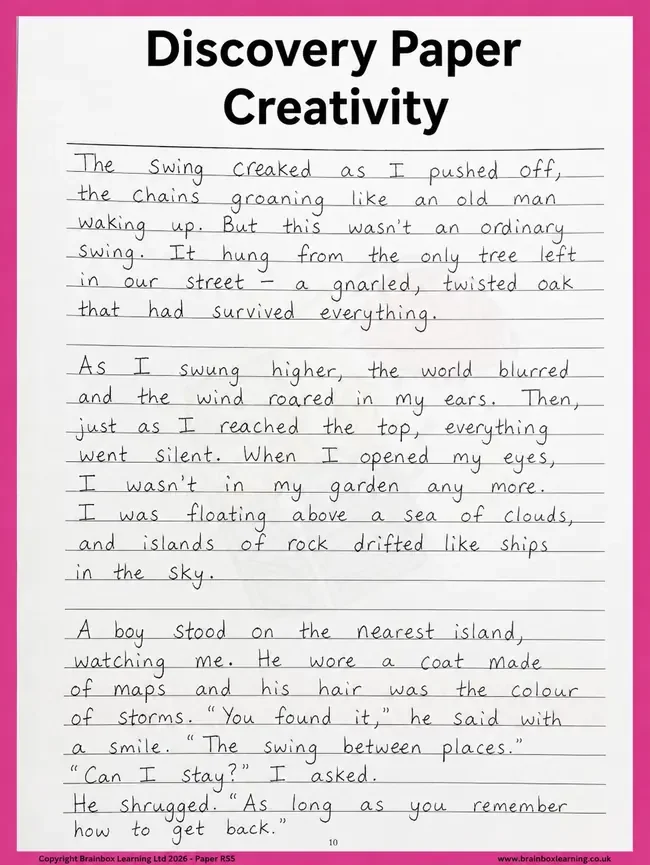 Discovery Paper
Creativity
The swing creaked as I pushed off,
the chains groaning like an old man
waking up. But this wasn't an ordinary
swing. It hung from the only tree left
in our street – a gnarled, twisted oak
that had survived everything.
As I swung higher, the world blurred
and the wind roared in my ears. Then,
just as I reached the top, everything
went silent. When I opened my eyes,
I wasn't in my garden any more.
I was floating above a sea of clouds,
and islands of rock drifted like ships
in the sky.
A boy stood on the nearest island,
watching me. He wore a coat made
of maps and his hair was the colour
of storms. "You found it," he said with
a smile. "The swing between places."
"Can I stay?" I asked.
He shrugged. "As long as you remember
how to get back."
10
Copyright Brainbox Learning Ltd 2026 - Paper RS5
www.brainboxlearning.co.uk